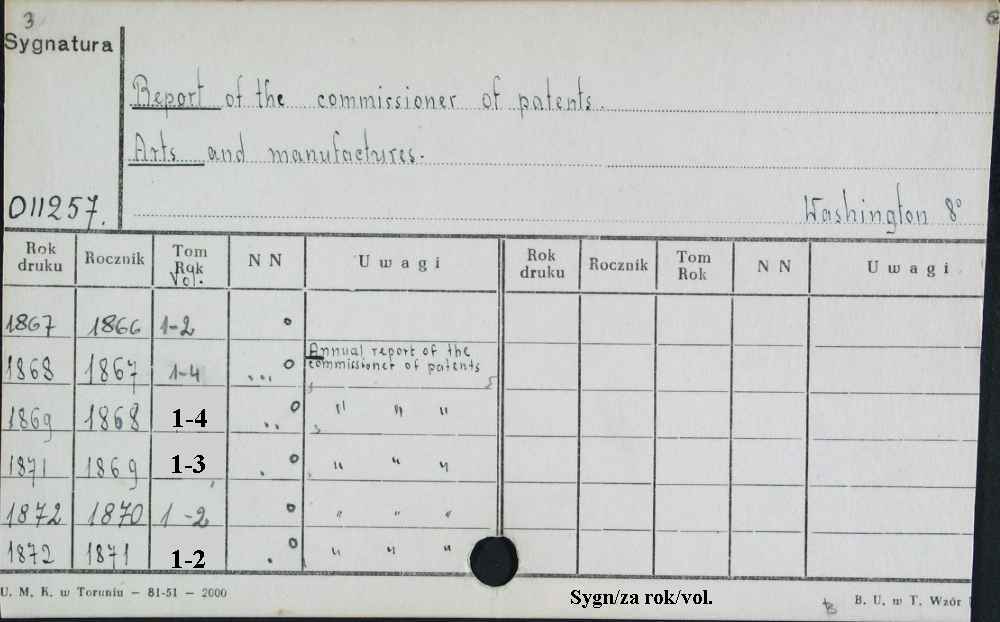 3
Sygnatura
Report of the commissioner of patents.
Arts and manufactures.
011257.
Washington 8°
Rok druku Rocznik Tom Rok Vol. N N Uwagi Rok druku Rocznik Tom Rok N N Uwagi
1867 1866 1-2 °
1868 1867 1-4 ... ° Annual report of the
commissioner of patents
1869 1868 1-4 .. ° " " "
1871 1869 1-3 . ° " " "
1872 1870 1-2 ° " " "
1872 1871 1-2 . ° " " "
U. M. K. w Toruniu — 81-51 — 2000
Sygn/za rok/vol.
B. U. w T. Wzór